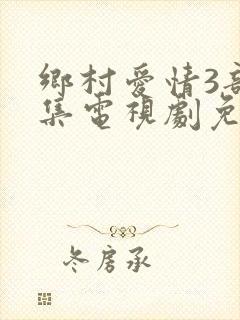 鄉村愛情3
集電視劇免
冬房承